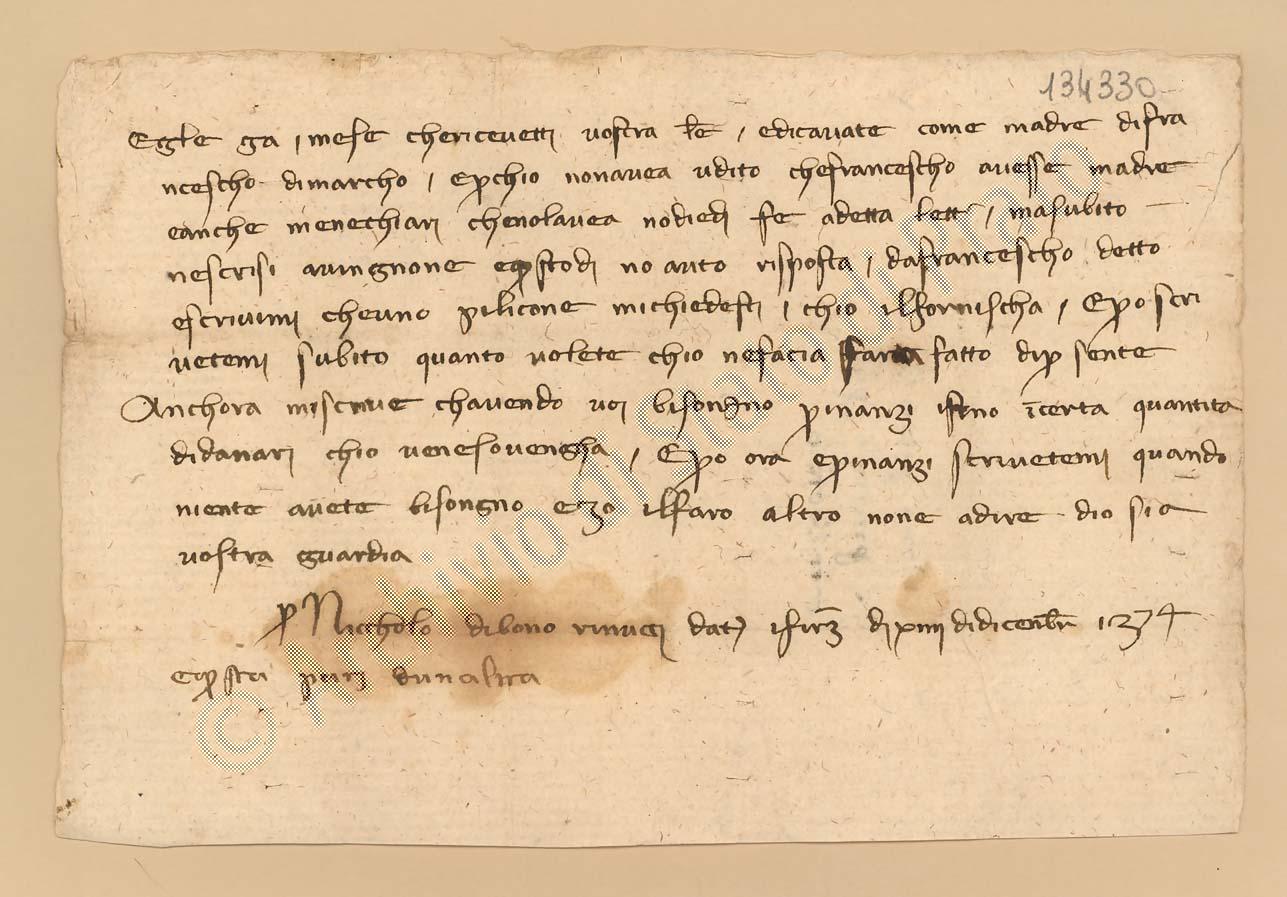 134330
Egl'e ga i mese chericevetti vostra l'e / edicavate come madre difra
ncescho dimarcho / epchio nonavea udito chefrancescho avesse madre
eanche menechiari chenolavea nodiedi fe adetta lett / masubito
nescrisi avingnone epstodi no auto risposta / dafrancescho detto
escrivimi cheuno pilicone michiedesti / chio ilfornischa / Epo scri
vetemi subito quanto volete chio nefacia fatto dip sente
Anchora miscrive chavendo voi bisongno pinanzi ifino icerta quantita
didanari chio venesovengha / Epo ora epinanzi scrivetemi quando
niente avete bisongno ezo ilfaro altro none adire dio sia
vostra guardia
p Nicholo dibono rinucci dat ifirz di xiiii didicenbr 1374
epsta parj dunaltra
© Archivio di Stato di Prato